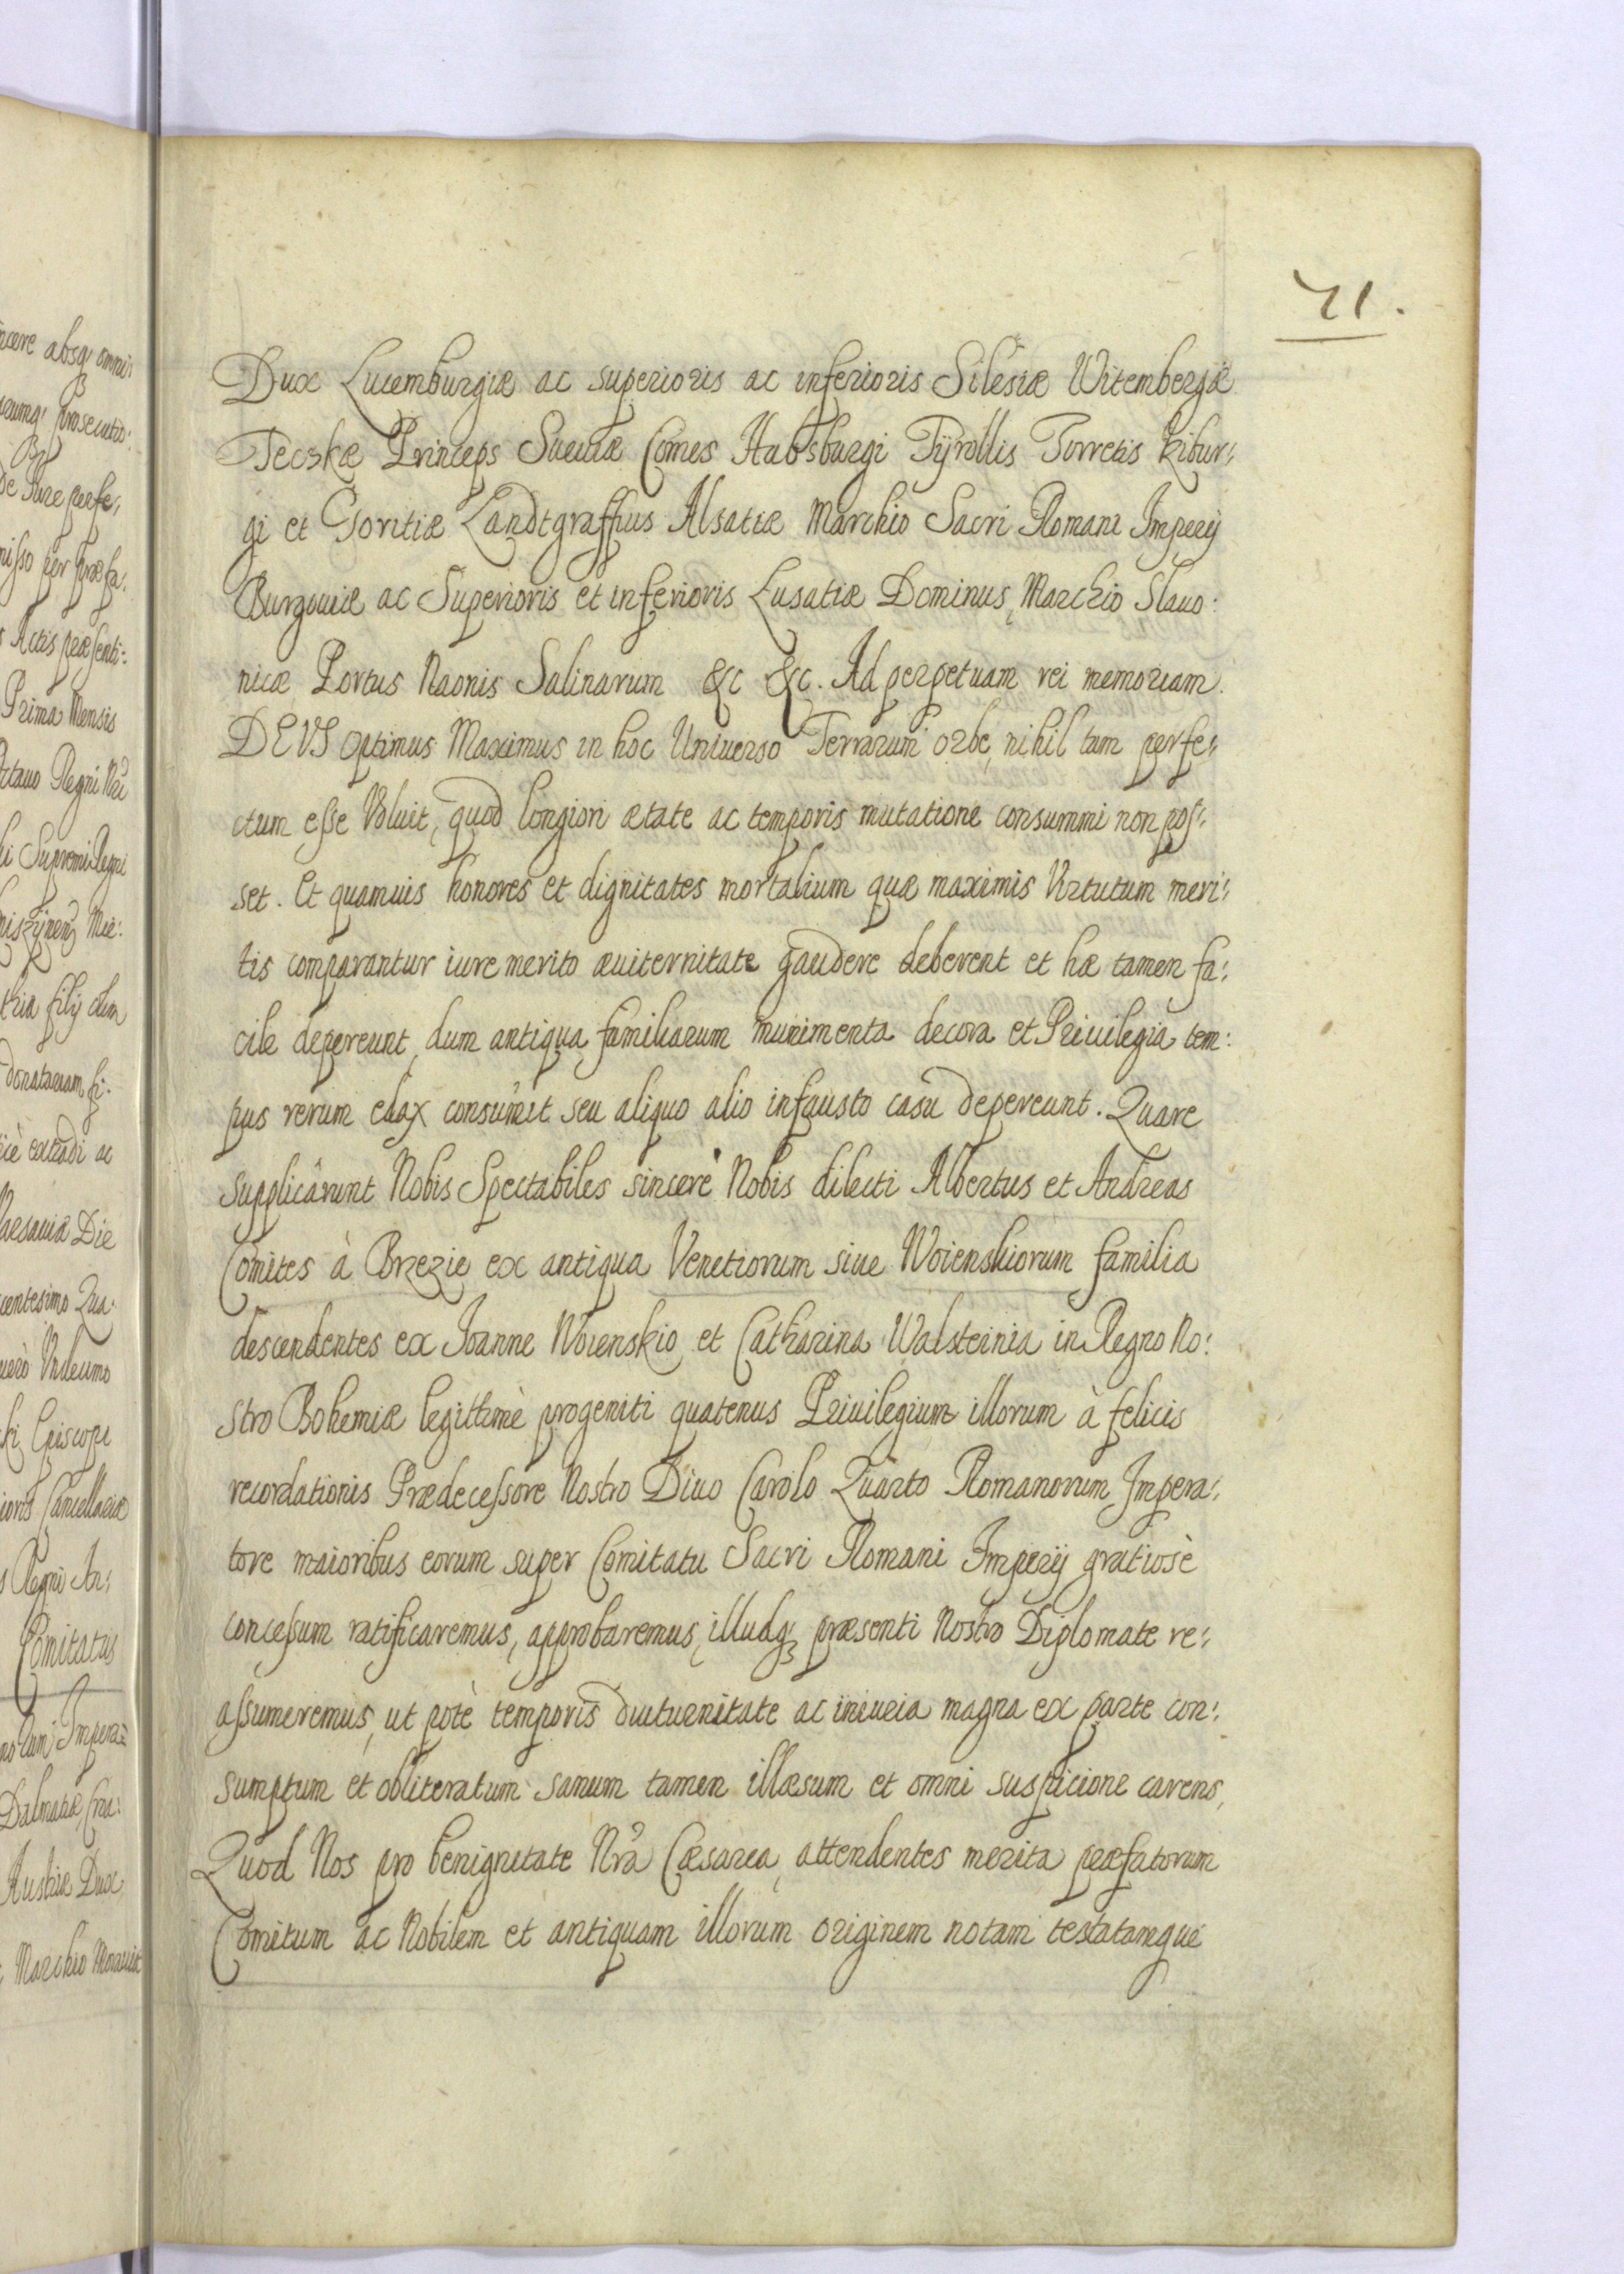 71.
Dux Lucemburgiæ ac superioris ac inferioris Silesiæ Witembergæ
Teczkæ Princeps Sueuiæ Comes Habsburgi Tÿrollis Torretis Kibur:
gi et Goritiæ Landtgraffius Alsatiæ Marchio Sacri Romani Imperij
Burgouiæ ac Superioris et inferioris Lusatiæ Dominus, Marchio Slauo:
nicæ Portus Naonis Salinarum &c &c. Ad perpetuam rei memoriam.
DEVS Optimus Maximus in hoc Uniuerso Terrarum orbe, nihil tam perfe:
ctum esse Voluit, quod longiori ætate ac temporis mutatione consummi non pos:
set. Et quamuis honores et dignitates mortalium quæ maximis Virtutum meri:
tis comparantur iure merito æuiternitate gaudere deberent et hæ tamen fa:
cile depereunt, dum antiqua familiarum munimenta decora et Priuilegia tem:
pus rerum edax consumit seu aliquo alio infausto casu depereunt. Quare
supplicârunt Nobis Spectabiles sincerè Nobis dilecti Albertus et Andreas
Comites à Brezie ex antiqua Venetiorum siue Woienskiorum familia
descendentes ex Joanne Woienskio et Catharina Walsteinia in Regno No:
stro Bohemiæ legittimè progeniti quatenus Priuilegium illorum à felicis
recordationis Prædecessore Nostro Diuo Carolo Quarto Romanorum Impera:
tore maioribus eorum super Comitatu Sacri Romani Imperij gratiosè
concessum ratificaremus, approbaremus, illudq; præsenti Nostro Diplomate re:
assumeremus, ut potè temporis diuturnitate ac iniuria magna ex parte con:
sumptum et obliteratum sanum tamen illæsum et omni suspicione carens,
Quod Nos pro benignitate Nrâ Cæsarea, attendentes merita præfatorum
Comitum ac Nobilem et antiquam illorum originem notam testatamque